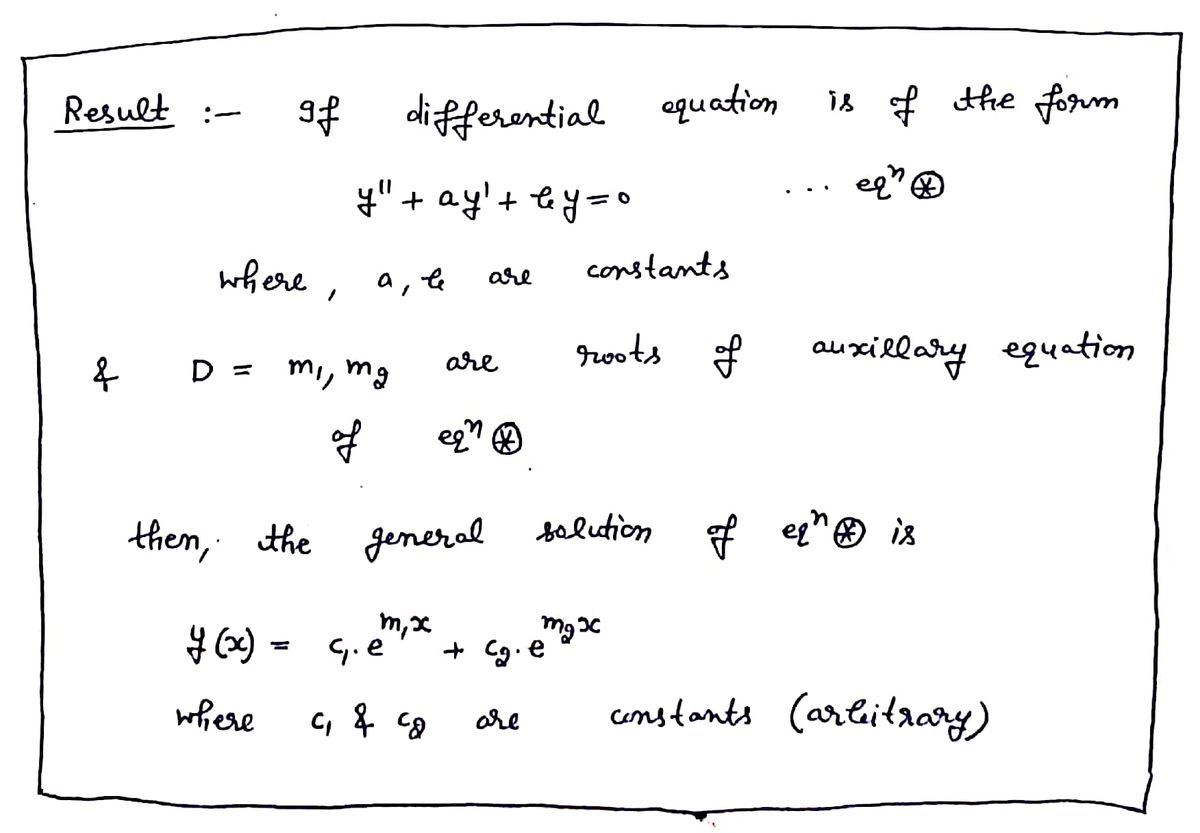 Result :- If differential equation is of the form
y'' + ay' + by = 0 ... eqⁿ ⊛
where, a, b are constants
& D = m₁, m₂ are roots of auxillary equation
of eqⁿ ⊛
then, the general solution of eqⁿ ⊛ is
y(x) = c₁.e^{m₁x} + c₂.e^{m₂x}
where c₁ & c₂ are constants (arbitrary)